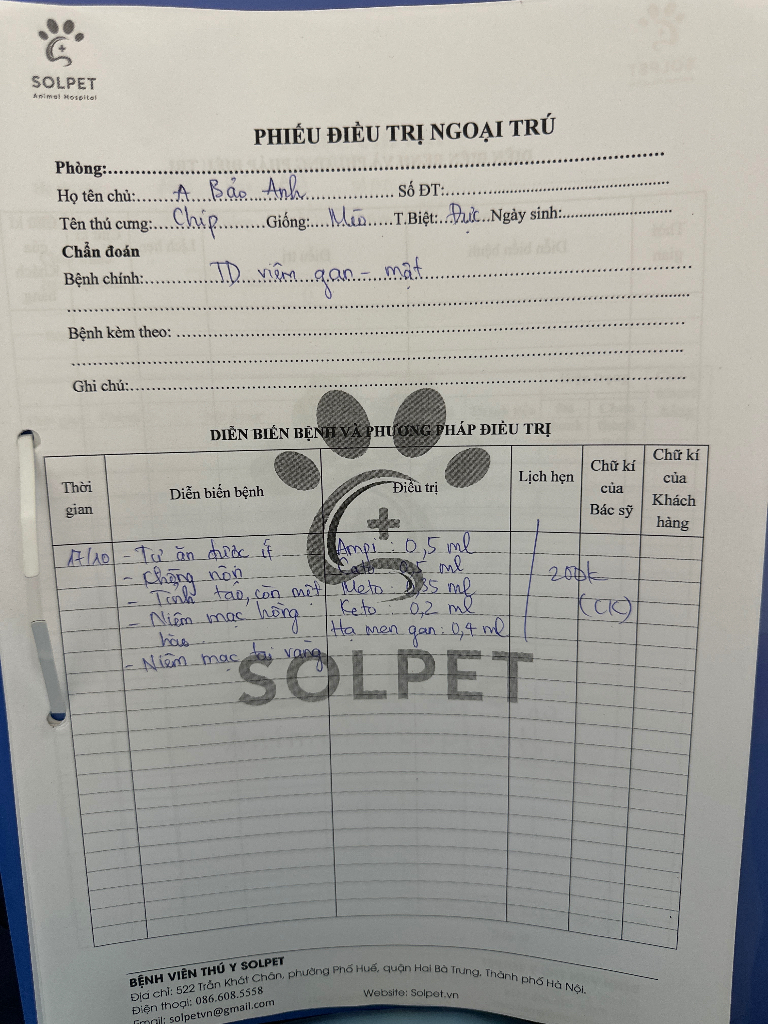 SOLPET
Animal Hospital
PHIẾU ĐIỀU TRỊ NGOẠI TRÚ
Phòng:
Họ tên chủ: A Bảo Anh Số ĐT:
Tên thú cưng: Chíp Giống: Mèo T.Biệt: Đực Ngày sinh:
Chẩn đoán
Bệnh chính: TD viêm gan - mật
Bệnh kèm theo:
Ghi chú:
DIỄN BIẾN BỆNH VÀ PHƯƠNG PHÁP ĐIỀU TRỊ
Thời gian Diễn biến bệnh Điều trị Lịch hẹn Chữ kí của Bác sỹ Chữ kí của Khách hàng
17/10 - Tự ăn được ít Ampi : 0,5 ml
- Không nôn 0,5 ml 200k
- Tỉnh táo, còn mệt Meto : 0,35 ml (CK)
- Niêm mạc hồng Keto : 0,2 ml
hào Hạ men gan : 0,4 ml
- Niêm mạc tai vàng
SOLPET
BỆNH VIỆN THÚ Y SOLPET
Địa chỉ: 522 Trần Khát Chân, phường Phố Huế, quận Hai Bà Trưng, Thành phố Hà Nội.
Điện thoại: 086.608.5558 Website: Solpet.vn
Email: solpetvn@gmail.com